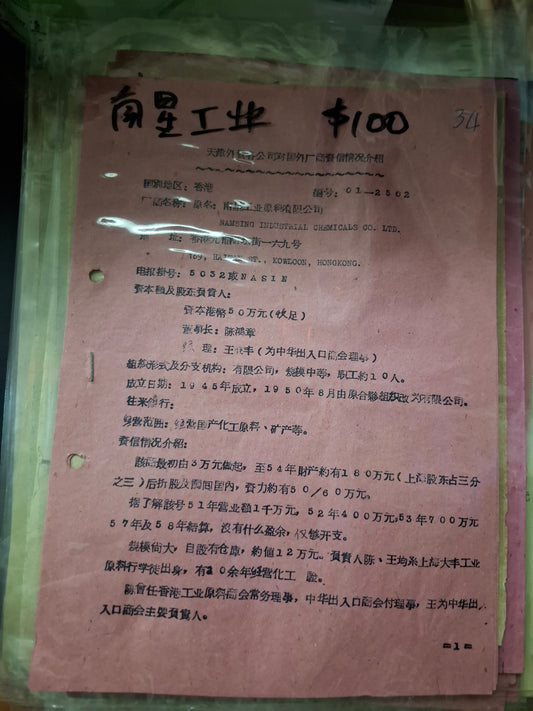 南星工业 $100
34
天津外贸各公司对国外厂商资信情况介绍
国别地区：香港 编号：01—2502
厂商名称：原名：南星工业原料有限公司
NAMSING INDUSTRIAL CHEMICALS CO. LTD.
址：香港九龍海壇街一六九号
169, HAITAN ST., KOWLOON, HONGKONG.
电报掛号：5032或NASIN
資本額及股东負責人：
資本港幣50万元（收足）
董事长：陈鴻章
经理：王丰（为中华出入口商会理事）
組織形式及分支机构：有限公司，規模中等，职工約10人。
成立日期：1945年成立，1950年8月由原合夥組織改为有限公司。
往来银行：
经营范围：经营国产化工原料、矿产等。
資信情况介紹：
該商最初由5万元做起，至54年財产約有180万元（上海股东占三分
之三）后折股及調回国内，資力約有50／60万元。
据了解該号51年营业額1千万元，52年400万元，53年700万元
57年及58年結算，沒有什么盈余，仅够开支。
規模尚大，自設有仓庫，約值12万元。負責人陈、王均系上海大丰工业
原料行学徒出身，有20余年经营化工 驗。
陈曾任香港工业原料商会常务理事，中华出入口商会付理事，王为中华出
入口商会主要負責人。
=1=